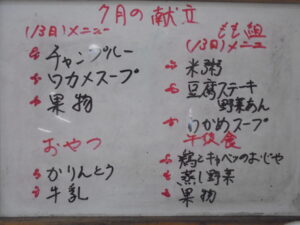 7月の献立
(13日)メニュー
チャンプルー
ワカメスープ
果物
おやつ
かりんとう
牛乳
もも組
(13日)メニュー
米粥
豆腐ステーキ
野菜あん
わかめスープ
午後食
鶏とキャベツのおじや
蒸し野菜
果物